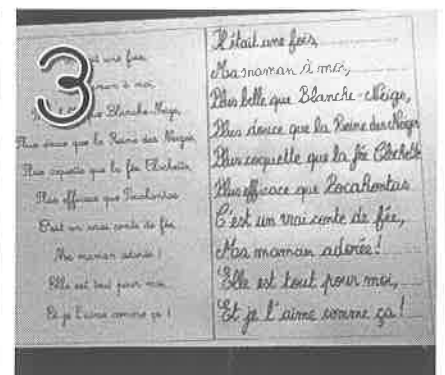 3
une fée
à moi,
que Blanche-Neige,
Plus douce que la Reine des Neiges
Plus coquette que la fée Clochette
Plus efficace que Pocahontas
C'est un vrai conte de fée,
Ma maman adorée !
Elle est tout pour moi,
Et je l'aime comme ça !
Il était une fois,
Ma maman à moi,
Plus belle que Blanche-Neige,
Plus douce que la Reine des Neiges
Plus coquette que la fée Clochette
Plus efficace que Pocahontas
C'est un vrai conte de fée,
Ma maman adorée !
Elle est tout pour moi,
Et je l'aime comme ça !